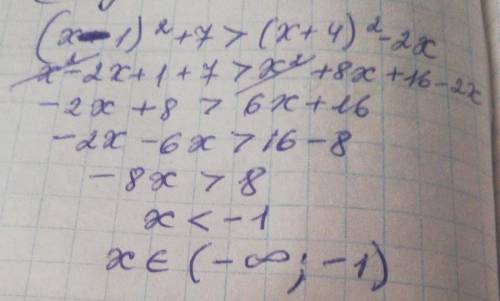 (x-1)² + 7 > (x+4)² - 2x
x² - 2x + 1 + 7 > x² + 8x + 16 - 2x
-2x + 8 > 6x + 16
-2x - 6x > 16 - 8
-8x > 8
x < -1
x ∈ (-∞; -1)